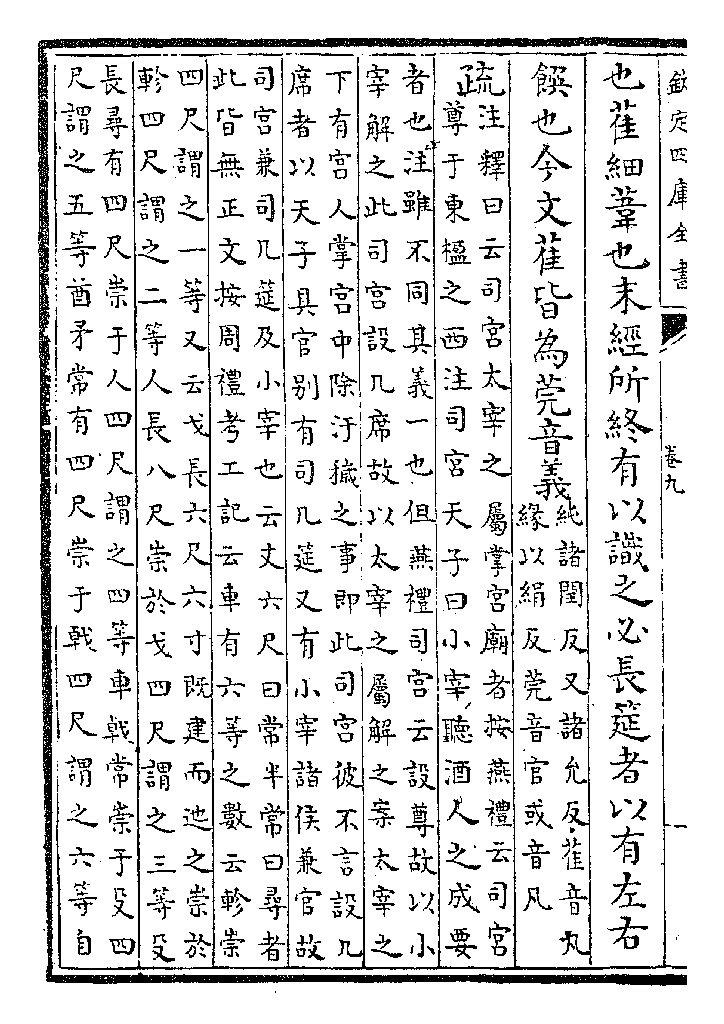 欽定四庫全書
卷九
也萑細葦也末經所終有以識之必長筵者以有左右
饌也今文萑皆為莞音義
純諸閏反又諸允反萑音丸
緣以絹反莞音官或音凡
疏
注釋曰云司宮太宰之屬掌宮廟者按燕禮云司宮
尊于東楹之西注司宮天子曰小宰聽酒人之成要
者也注雖不同其義一也但燕禮司宮云設尊故以小
宰解之此司宮設几席故以太宰之屬解之案太宰之
下有宮人掌宮中除汙穢之事即此司宮彼不言設几
席者以天子具官别有司几筵又有小宰諸侯兼官故
司宮兼司几筵及小宰也云丈六尺曰常半常曰尋者
此皆無正文按周禮考工記云車有六等之數云軫崇
四尺謂之一等又云戈長六尺六寸既建而迆之崇於
軫四尺謂之二等人長八尺崇於戈四尺謂之三等殳
長尋有四尺崇于人四尺謂之四等車戟常崇于殳四
尺謂之五等酋矛常有四尺崇于戟四尺謂之六等自